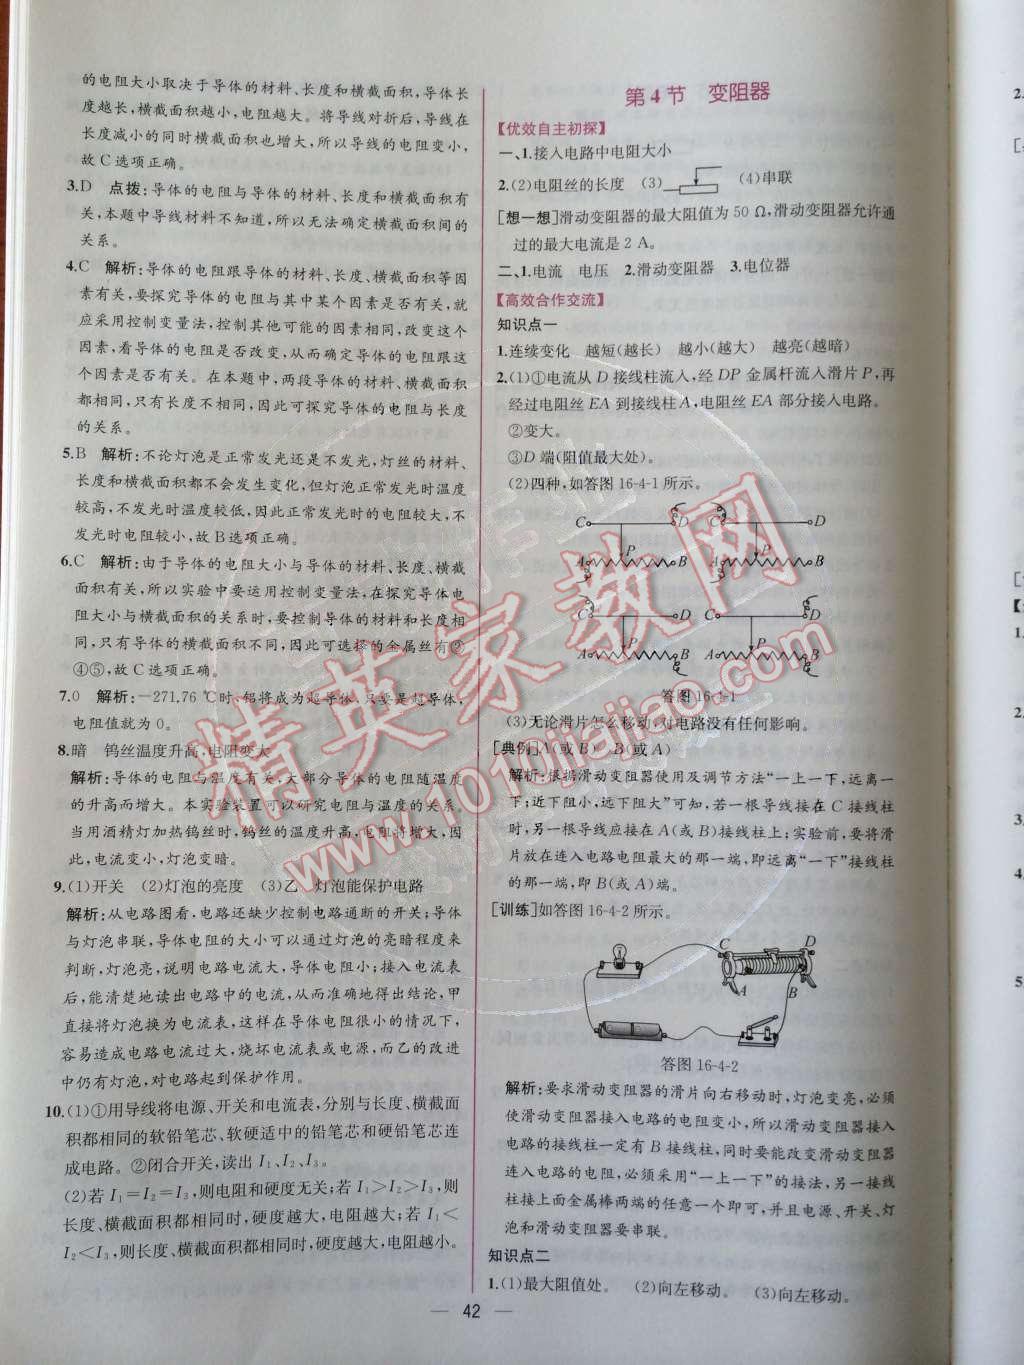 的电阻大小取决于导体的材料、长度和横截面积,导体长
度越长,横截面积越小,电阻越大。将导线对折后,导线在
长度减小的同时横截面积也增大,所以导线的电阻变小,
故C选项正确。
3.D 点拨:导体的电阻与导体的材料、长度和横截面积有
关,本题中导线材料不知道,所以无法确定横截面积间的
关系。
4.C 解析:导体的电阻跟导体的材料、长度、横截面积等因
素有关,要探究导体的电阻与其中某个因素是否有关,就
应采用控制变量法,控制其他可能的因素相同,改变这个
因素,看导体的电阻是否改变,从而确定导体的电阻跟这
个因素是否有关。在本题中,两段导体的材料、横截面积
都相同,只有长度不相同,因此可探究导体的电阻与长度
的关系。
5.B 解析:不论灯泡是正常发光还是不发光,灯丝的材料、
长度和横截面积都不会发生变化,但灯泡正常发光时温度
较高,不发光时温度较低,因此正常发光时的电阻较大,不
发光时电阻较小,故B选项正确。
6.C 解析:由于导体的电阻大小与导体的材料、长度、横截
面积有关,所以实验中要运用控制变量法,在探究导体电
阻大小与横截面积的关系时,要控制导体的材料和长度相
同,只有导体的横截面积不同,因此可选择的金属丝有②
④⑤,故C选项正确。
7.0 解析:-271.76℃时,铝将成为超导体,只要是超导体,
电阻值就为0。
8.暗 钨丝温度升高,电阻变大
解析:导体的电阻与温度有关,大部分导体的电阻随温度
的升高而增大。本实验装置可以研究电阻与温度的关系。
当用酒精灯加热钨丝时,钨丝的温度升高,电阻将增大,因
此,电流变小,灯泡变暗。
9.(1)开关 (2)灯泡的亮度 (3)乙 灯泡能保护电路
解析:从电路图看,电路还缺少控制电路通断的开关;导体
与灯泡串联,导体电阻的大小可以通过灯泡的亮暗程度来
判断,灯泡亮,说明电路电流大,导体电阻小;接入电流表
后,能清楚地读出电路中的电流,从而准确地得出结论,甲
直接将灯泡换为电流表,这样在导体电阻很小的情况下,
容易造成电路电流过大,烧坏电流表或电源,而乙的改进
中仍有灯泡,对电路起到保护作用。
10.(1)①用导线将电源、开关和电流表,分别与长度、横截面
积都相同的软铅笔芯、软硬适中的铅笔芯和硬铅笔芯连
成电路。②闭合开关,读出I₁、I₂、I₃。
(2)若I₁=I₂=I₃,则电阻和硬度无关;若I₁>I₂>I₃,则
长度、横截面积都相同时,硬度越大,电阻越大;若I₁<
I₂<I₃,则长度、横截面积都相同时,硬度越大,电阻越小。
第4节 变阻器
【优效自主初探】
一、1.接入电路中电阻大小
2.(2)电阻丝的长度 (3) (4)串联
[想一想]滑动变阻器的最大阻值为50 Ω,滑动变阻器允许通
过的最大电流是2 A。
二、1.电流 电压 2.滑动变阻器 3.电位器
【高效合作交流】
知识点一
1.连续变化 越短(越长) 越小(越大) 越亮(越暗)
2.(1)①电流从D接线柱流入,经DP金属杆流入滑片P,再
经过电阻丝EA到接线柱A,电阻丝EA部分接入电路。
②变大。
③D端(阻值最大处)。
(2)四种,如答图16-4-1所示。
C D C D
P P
A B A B
C D C D
P P
A B A B
答图16-4-1
(3)无论滑片怎么移动,对电路没有任何影响。
[典例]A(或B) B(或A)
解析:根据滑动变阻器使用及调节方法“一上一下,远离一
下;近下阻小,远下阻大”可知,若一根导线接在C接线柱
时,另一根导线应接在A(或B)接线柱上;实验前,要将滑
片放在连入电路电阻最大的那一端,即远离“一下”接线柱
的那一端,即B(或A)端。
[训练]如答图16-4-2所示。
C D
A B
答图16-4-2
解析:要求滑动变阻器的滑片向右移动时,灯泡变亮,必须
使滑动变阻器接入电路的电阻变小,所以滑动变阻器接入
电路的接线柱一定有B接线柱,同时要能改变滑动变阻器
连入电路的电阻,必须采用“一上一下”的接法,另一接线
柱接上面金属棒两端的任意一个即可,并且电源、开关、灯
泡和滑动变阻器要串联。
知识点二
1.(1)最大阻值处。 (2)向左移动。 (3)向左移动。
42
精英家教网
www.1010jiajiao.com